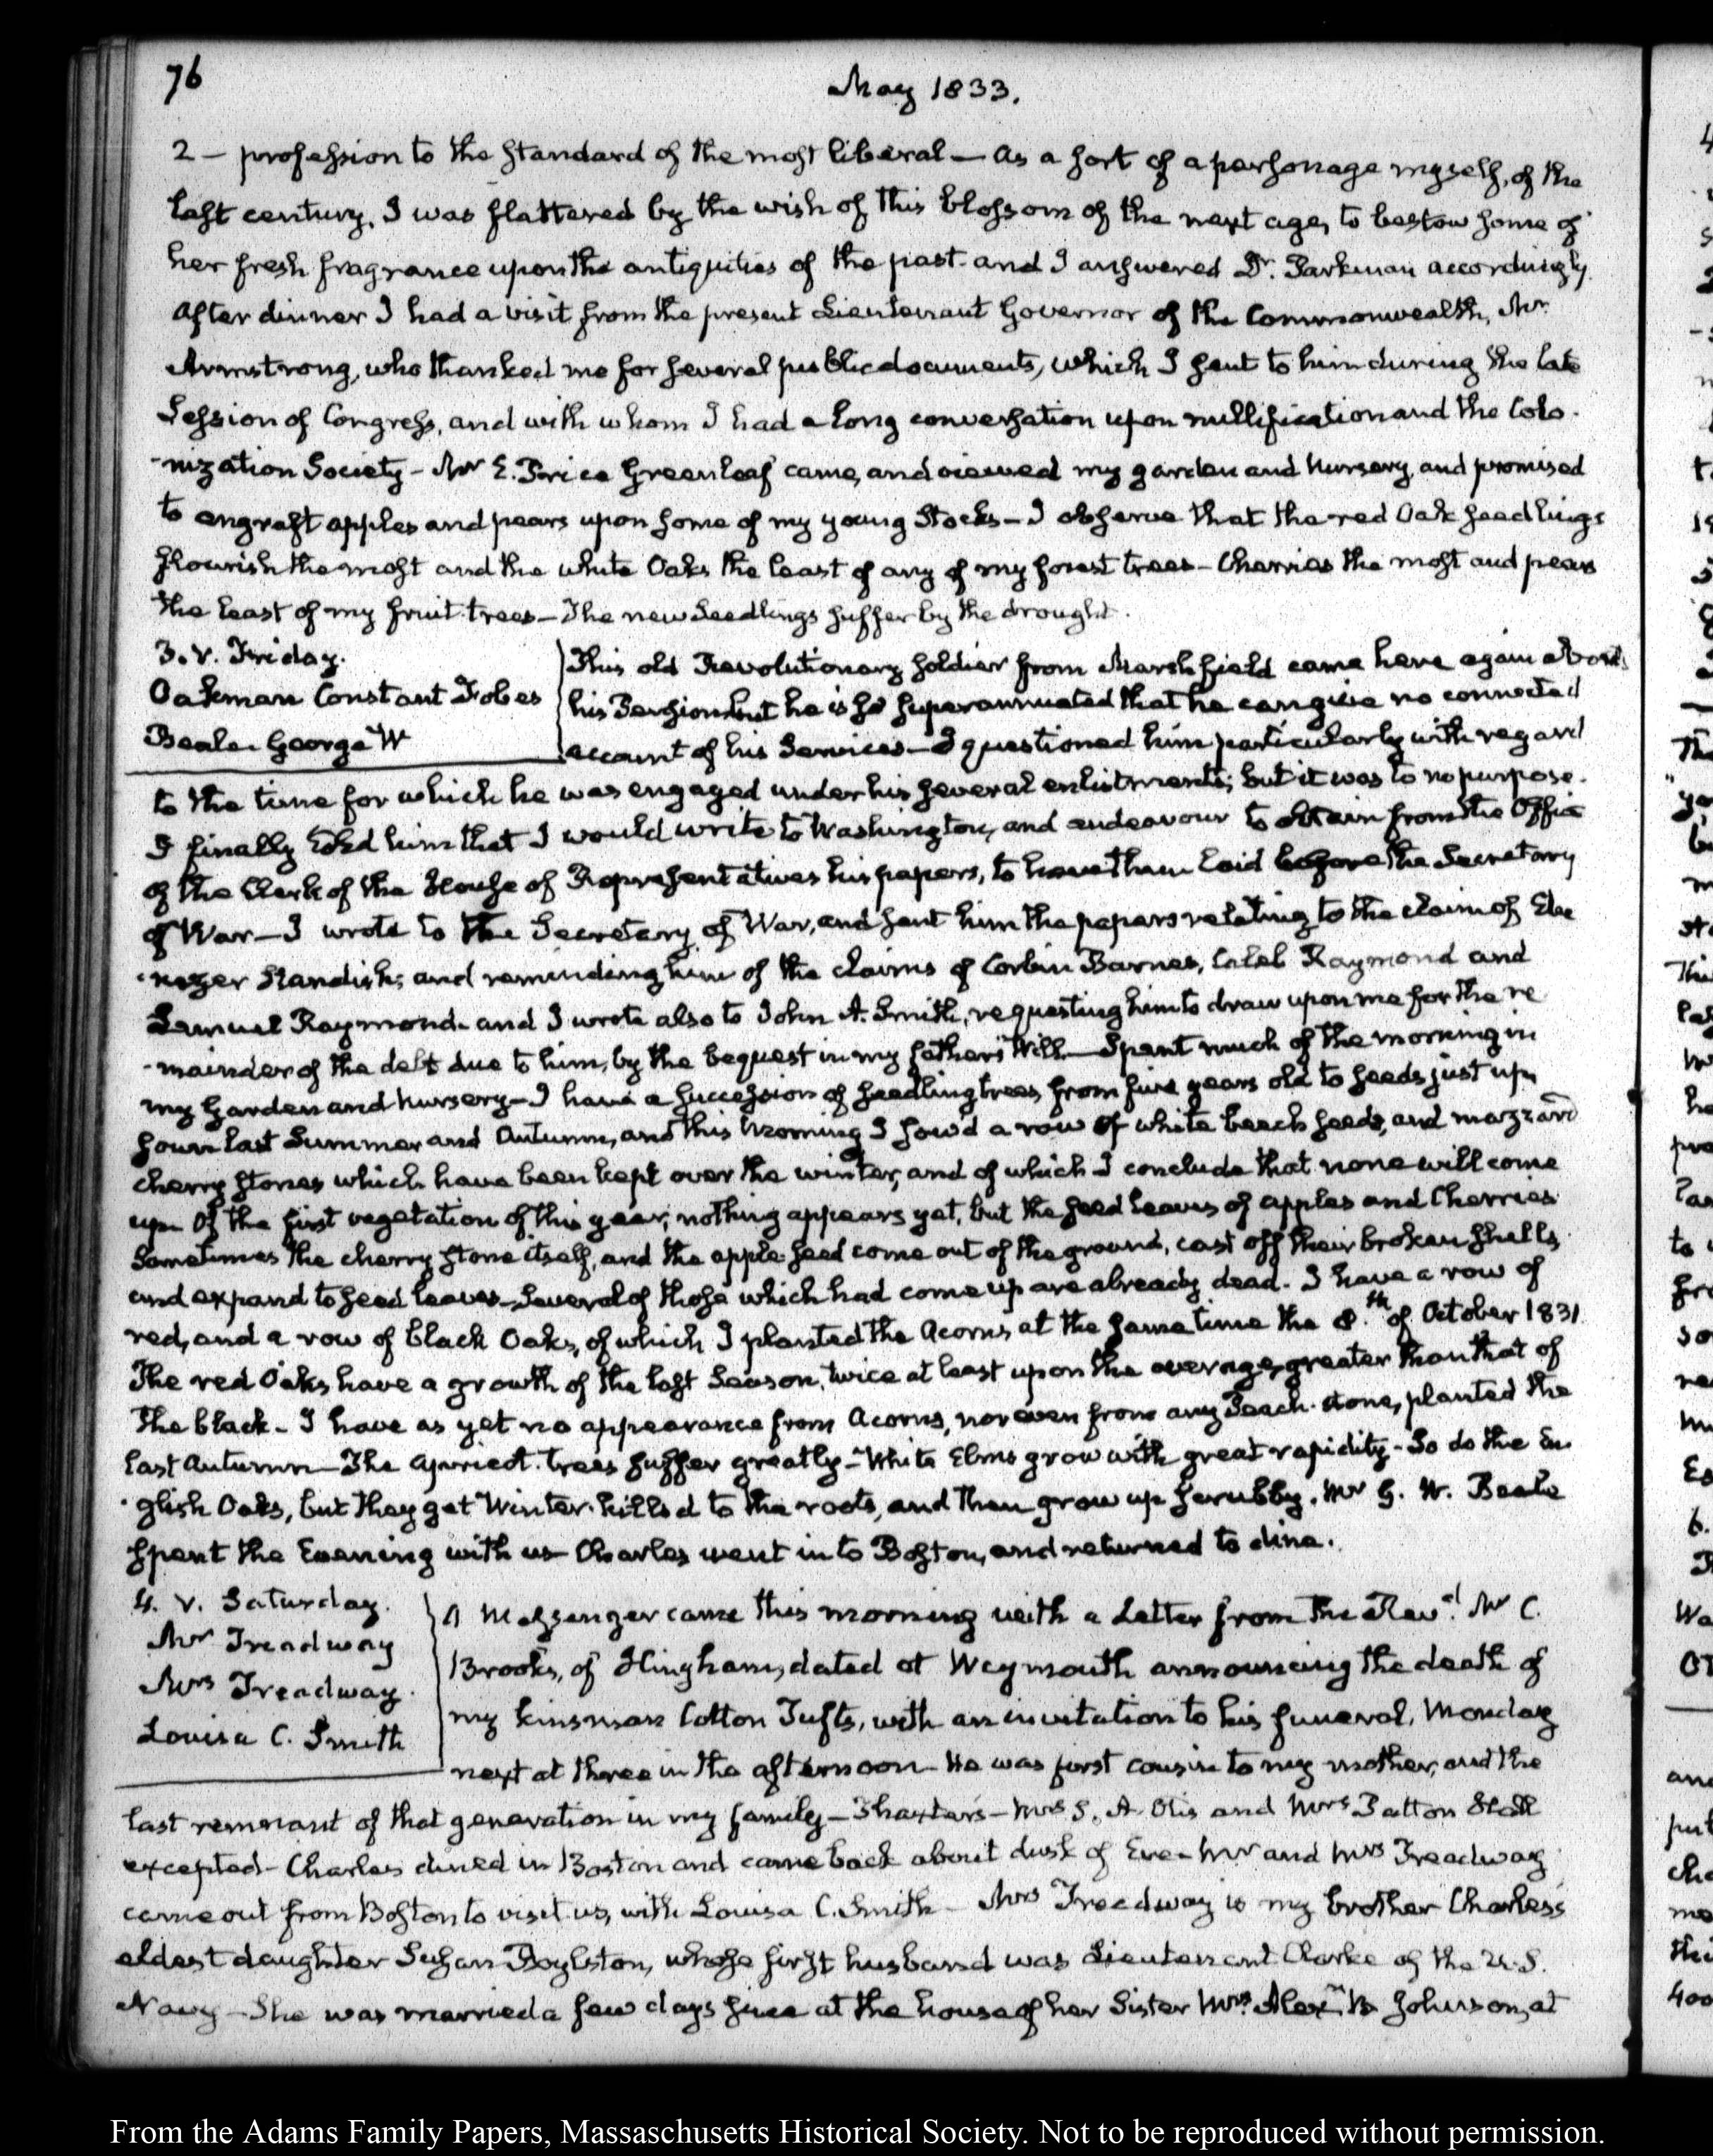 76
May 1833.
2 – profession to the standard of the most liberal – As a sort of a personage myself, of the
last century, I was flattered by the wish of this blossom of the next age, to bestow some of
her fresh fragrance upon the antiquities of the past – and I answered Dr. Parkman accordingly.
After dinner I had a visit from the present Lieutenant Governor of the Commonwealth, Mr.
Armstrong, who thanked me for several public documents, which I sent to him during the late
Session of Congress, and with whom I had a long conversation upon nullification and the Colo-
-nization Society – Mr E. Price Greenleaf came, and viewed my garden and Nursery, and promised
to engraft apples and pears upon some of my young Stocks – I observe that the red Oak seedlings
flourish the most and the white Oaks the least of any of my forest trees – Cherries the most and pears
the least of my fruit trees – The new Seedlings suffer by the drought.
3. V. Friday.
Oakman Constant Fobes
Beale George W
This old Revolutionary soldier from Marshfield came here again about
his Pension but he is so superannuated that he can give no connected
account of his Services – I questioned him particularly with regard
to the time for which he was engaged under his several enlistments; but it was to no purpose.
I finally told him that I would write to Washington, and endeavour to obtain from the Office
of the Clerk of the House of Representatives his papers, to have them laid before the Secretary
of War – I wrote to the Secretary of War, and sent him the papers relating to the claim of Ebe
-nezer Standish; and reminding him of the claims of Corbin Barnes, Caleb Raymond and
Samuel Raymond – and I wrote also to John A. Smith, requesting him to draw upon me for the re
-mainder of the debt due to him, by the bequest in my father's Will – Spent much of the morning in
my Garden and Nursery – I have a succession of seedling trees from five years old to seeds just up,
sown last Summer and Autumn, and this Morning I sow'd a row of white beech seeds, and mazzard
cherry stones which have been kept over the winter, and of which I conclude that none will come
up – Of the first vegetation of this year, nothing appears yet, but the seed leaves of apples and Cherries
Sometimes the cherry stone itself, and the apple seed come out of the ground, cast off their broken shells
and expand to seed leaves – Several of those which had come up are already dead. I have a row of
red, and a row of black Oaks, of which I planted the Acorns at the same time the 8.th of October 1831.
The red Oaks have a growth of the last Season, twice at least upon the average, greater than that of
the black – I have as yet no appearance from Acorns, nor even from any Peach-stone, planted the
last Autumn – The Apricot trees suffer greatly – White Elms grow with great rapidity – So do the En
-glish Oaks, but they get Winter-killed to the roots, and then grow up scrubby. Mr G. W. Beale
spent the Evening with us – Charles went in to Boston, and returned to dine.
4. V. Saturday.
Mr Treadway
Mrs Treadway.
Louisa C. Smith
A Messenger came this morning with a Letter from the Revd. Mr C.
Brooks, of Hingham, dated at Weymouth announcing the death of
my kinsman Cotton Tufts, with an invitation to his funeral, Monday
next at three in the afternoon – He was first cousin to my mother, and the
last remnant of that generation in my family – Thaxters – Mrs S. A. Otis and Mrs
excepted – Charles dined in Boston and came back about dusk of Eve – Mr and Mrs Treadway
came out from Boston to visit us, with Louisa C. Smith – Mrs Treadway is my brother Charles's
eldest daughter Susan Boylston, whose first husband was Lieutenant Clarke of the U.S.
Navy – She was married a few days since at the house of her Sister Mrs. Alexr. B Johnson, at
From the Adams Family Papers, Massaschusetts Historical Society. Not to be reproduced without permission.